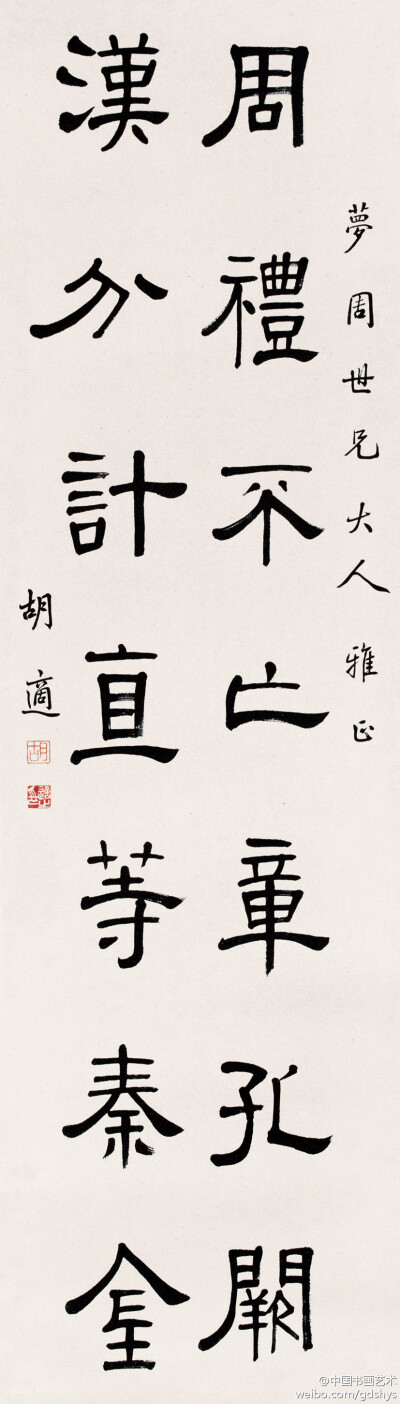 夢周世兄大人雅正
周禮不亡章孔闕
漢分計直等秦金
胡適
胡
@中国书画艺术
weibo.com/gdshys